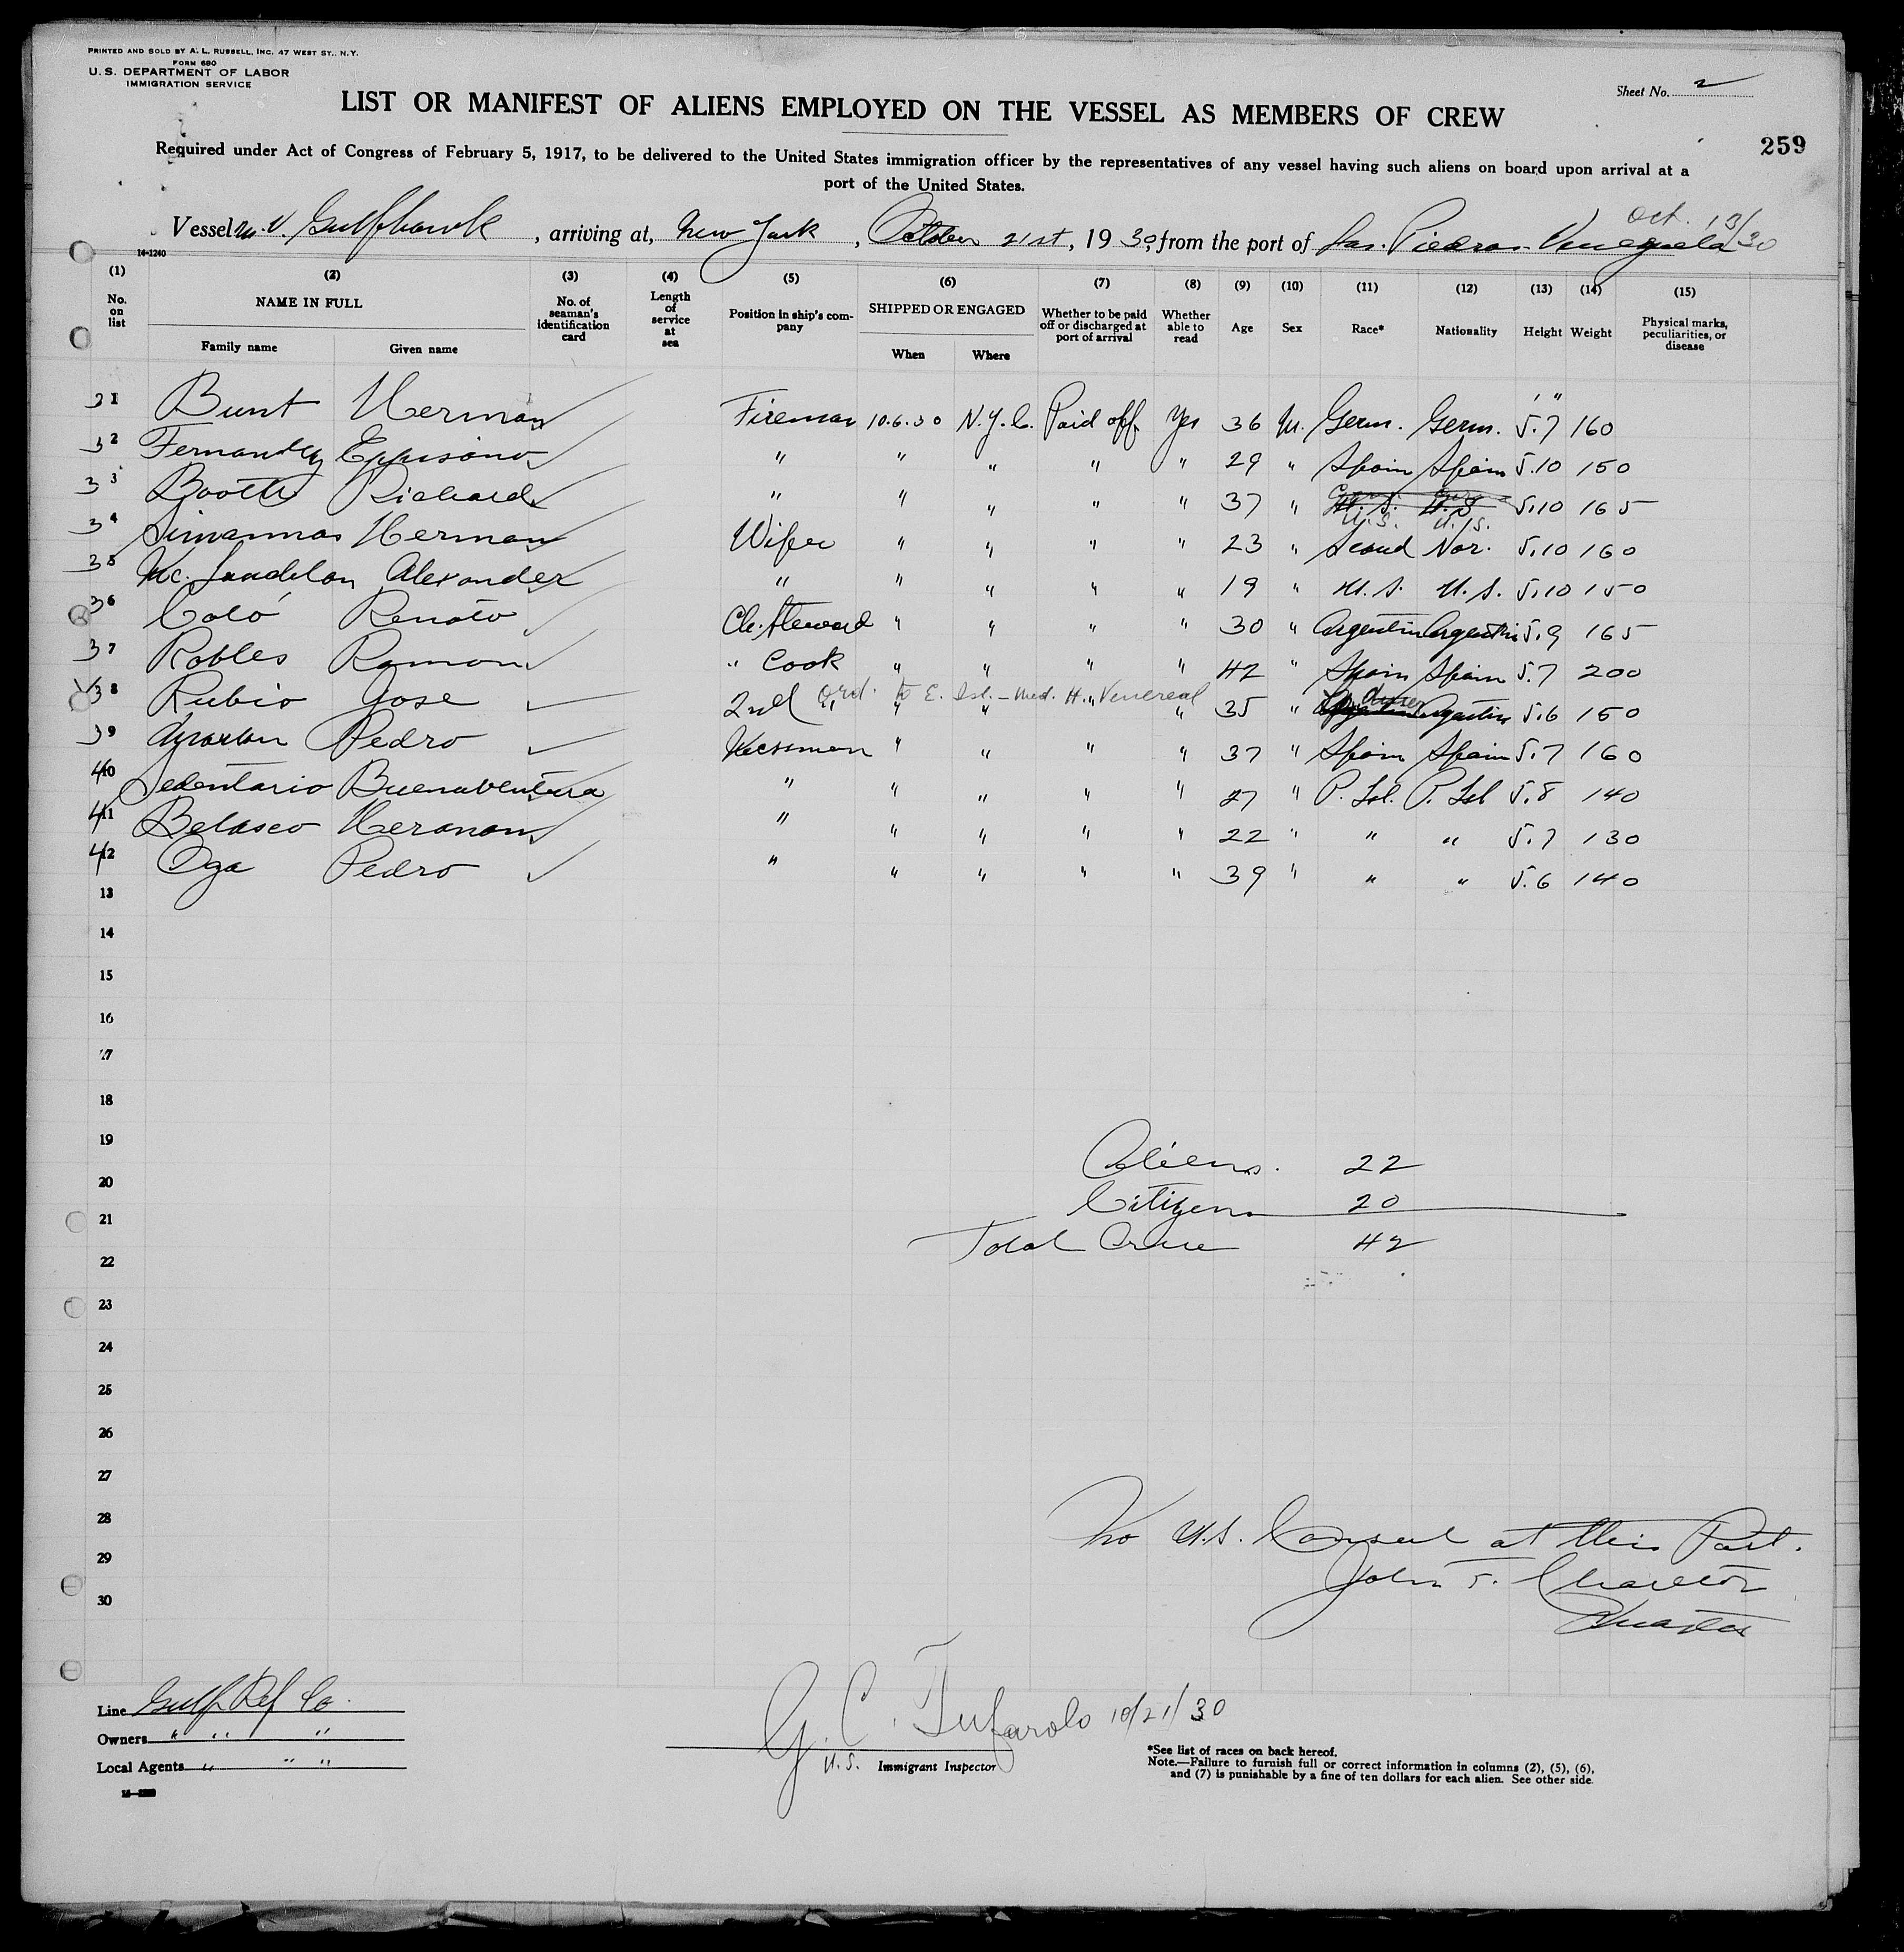 PRINTED AND SOLD BY A. L. RUSSELL, INC. 47 WEST ST., N.Y.
FORM 680
U. S. DEPARTMENT OF LABOR
IMMIGRATION SERVICE
Sheet No. 2
LIST OR MANIFEST OF ALIENS EMPLOYED ON THE VESSEL AS MEMBERS OF CREW
259
Required under Act of Congress of February 5, 1917, to be delivered to the United States immigration officer by the representatives of any vessel having such aliens on board upon arrival at a
port of the United States.
Oct. 13/30
Vessel M.V. Gulfhawk, arriving at, New York, October 21st, 1930, from the port of Las Piedras Venezuela
14-1240
(1) (2) (3) (4) (5) (6) (7) (8) (9) (10) (11) (12) (13) (14) (15)
No. on list NAME IN FULL No. of seaman's identification card Length of service at sea Position in ship's company SHIPPED OR ENGAGED Whether to be paid off or discharged at port of arrival Whether able to read Age Sex Race* Nationality Height Weight Physical marks, peculiarities, or disease
Family name Given name When Where
31 Bunt Herman Fireman 10.6.30 N.Y.C. Paid off Yes 36 M. Germ. Germ. 5.7 160
32 Fernandez " " " " " 29 " Spain Spain 5.10 150
33 Booth Richard " " " " " 37 " U.S. U.S. 5.10 165
34 Herman Wiper " " " " 23 " Scand Nor. 5.10 160
35 Alexander " " " " " 19 " U.S. U.S. 5.10 150
36 Coló Renato Ch. Steward " " " " 30 " Argentin Argentin 5.9 165
37 Robles Ramon " Cook " " " " 42 " Spain Spain 5.7 200
Ord. to E. Isl. - Med. H. Venereal
38 Rubio Jose 2nd " " " " " 35 " Argentin 5.6 150
39 Pedro Messman " " " " 37 " Spain Spain 5.7 160
40 Sedentario Buenaventura " " " " " 27 " P. Isl. P. Isl 5.8 140
41 Belasco " " " " " 22 " " " 5.7 130
42 Oga Pedro " " " " " 39 " " " 5.6 140
13
14
15
16
17
18
19
Aliens. 22
20
Citizens 20
21
Total Crew 42
22
23
24
25
26
27
28
No U.S. Consul at this Port.
29
John T.
30
Master
Line Gulf Ref Co.
Owners " " "
Local Agents " " "
G. C. Tufarolo 10/21/30
U.S. Immigrant Inspector
*See list of races on back hereof.
Note.—Failure to furnish full or correct information in columns (2), (5), (6),
and (7) is punishable by a fine of ten dollars for each alien. See other side.